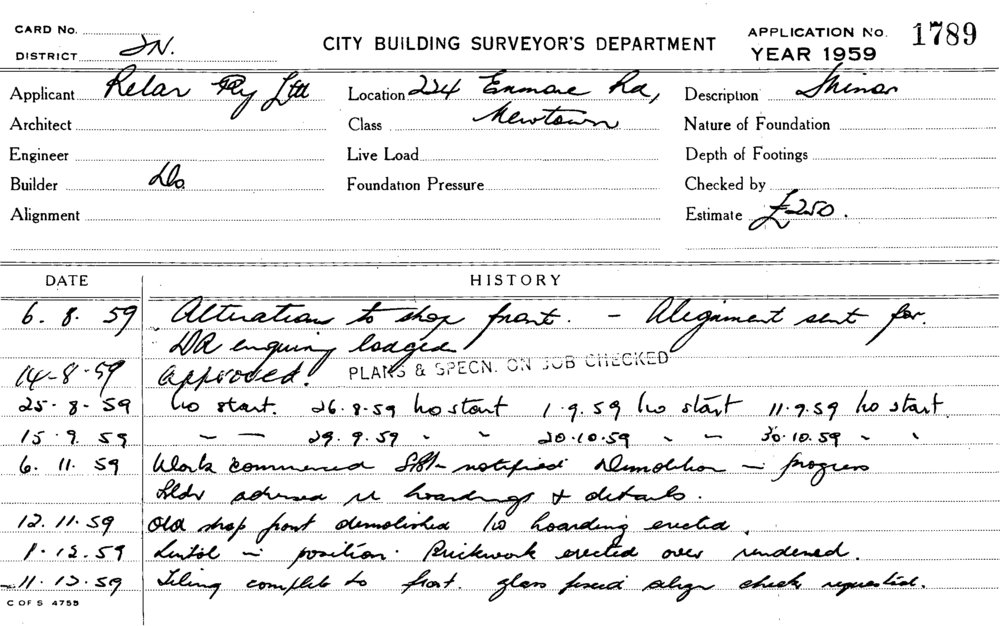 CARD No.
DISTRICT
CITY BUILDING SURVEYOR'S DEPARTMENT
APPLICATION No. 1789
YEAR 1959
Applicant Relar Pty Ltd
Location 224 Enmore Rd,
Description Minor
Architect
Class Newtown
Nature of Foundation
Engineer
Live Load
Depth of Footings
Builder Do.
Foundation Pressure
Checked by
Alignment
Estimate £250.
DATE HISTORY
6. 8. 59 Alterations to shop front. - Alignment sent for.
DA enquiry lodged
14-8-59 Approved. PLANS & SPECN. ON JOB CHECKED
25-8-59 No start. 26.8.59 No start 1.9.59 No start 11.9.59 No start
15.9.59 " — 29.9.59 " " 20.10.59 " " 30.10.59 " "
6.11.59 Work commenced notified Demolition in progress
Bldr advised re hoardings & details.
12.11.59 Old shop front demolished No hoarding erected.
1.12.59 Lintol in position. Brickwork erected over rendered.
11.12.59 Tiling complete to front. glass fixed align check requested.
C OF S 475B